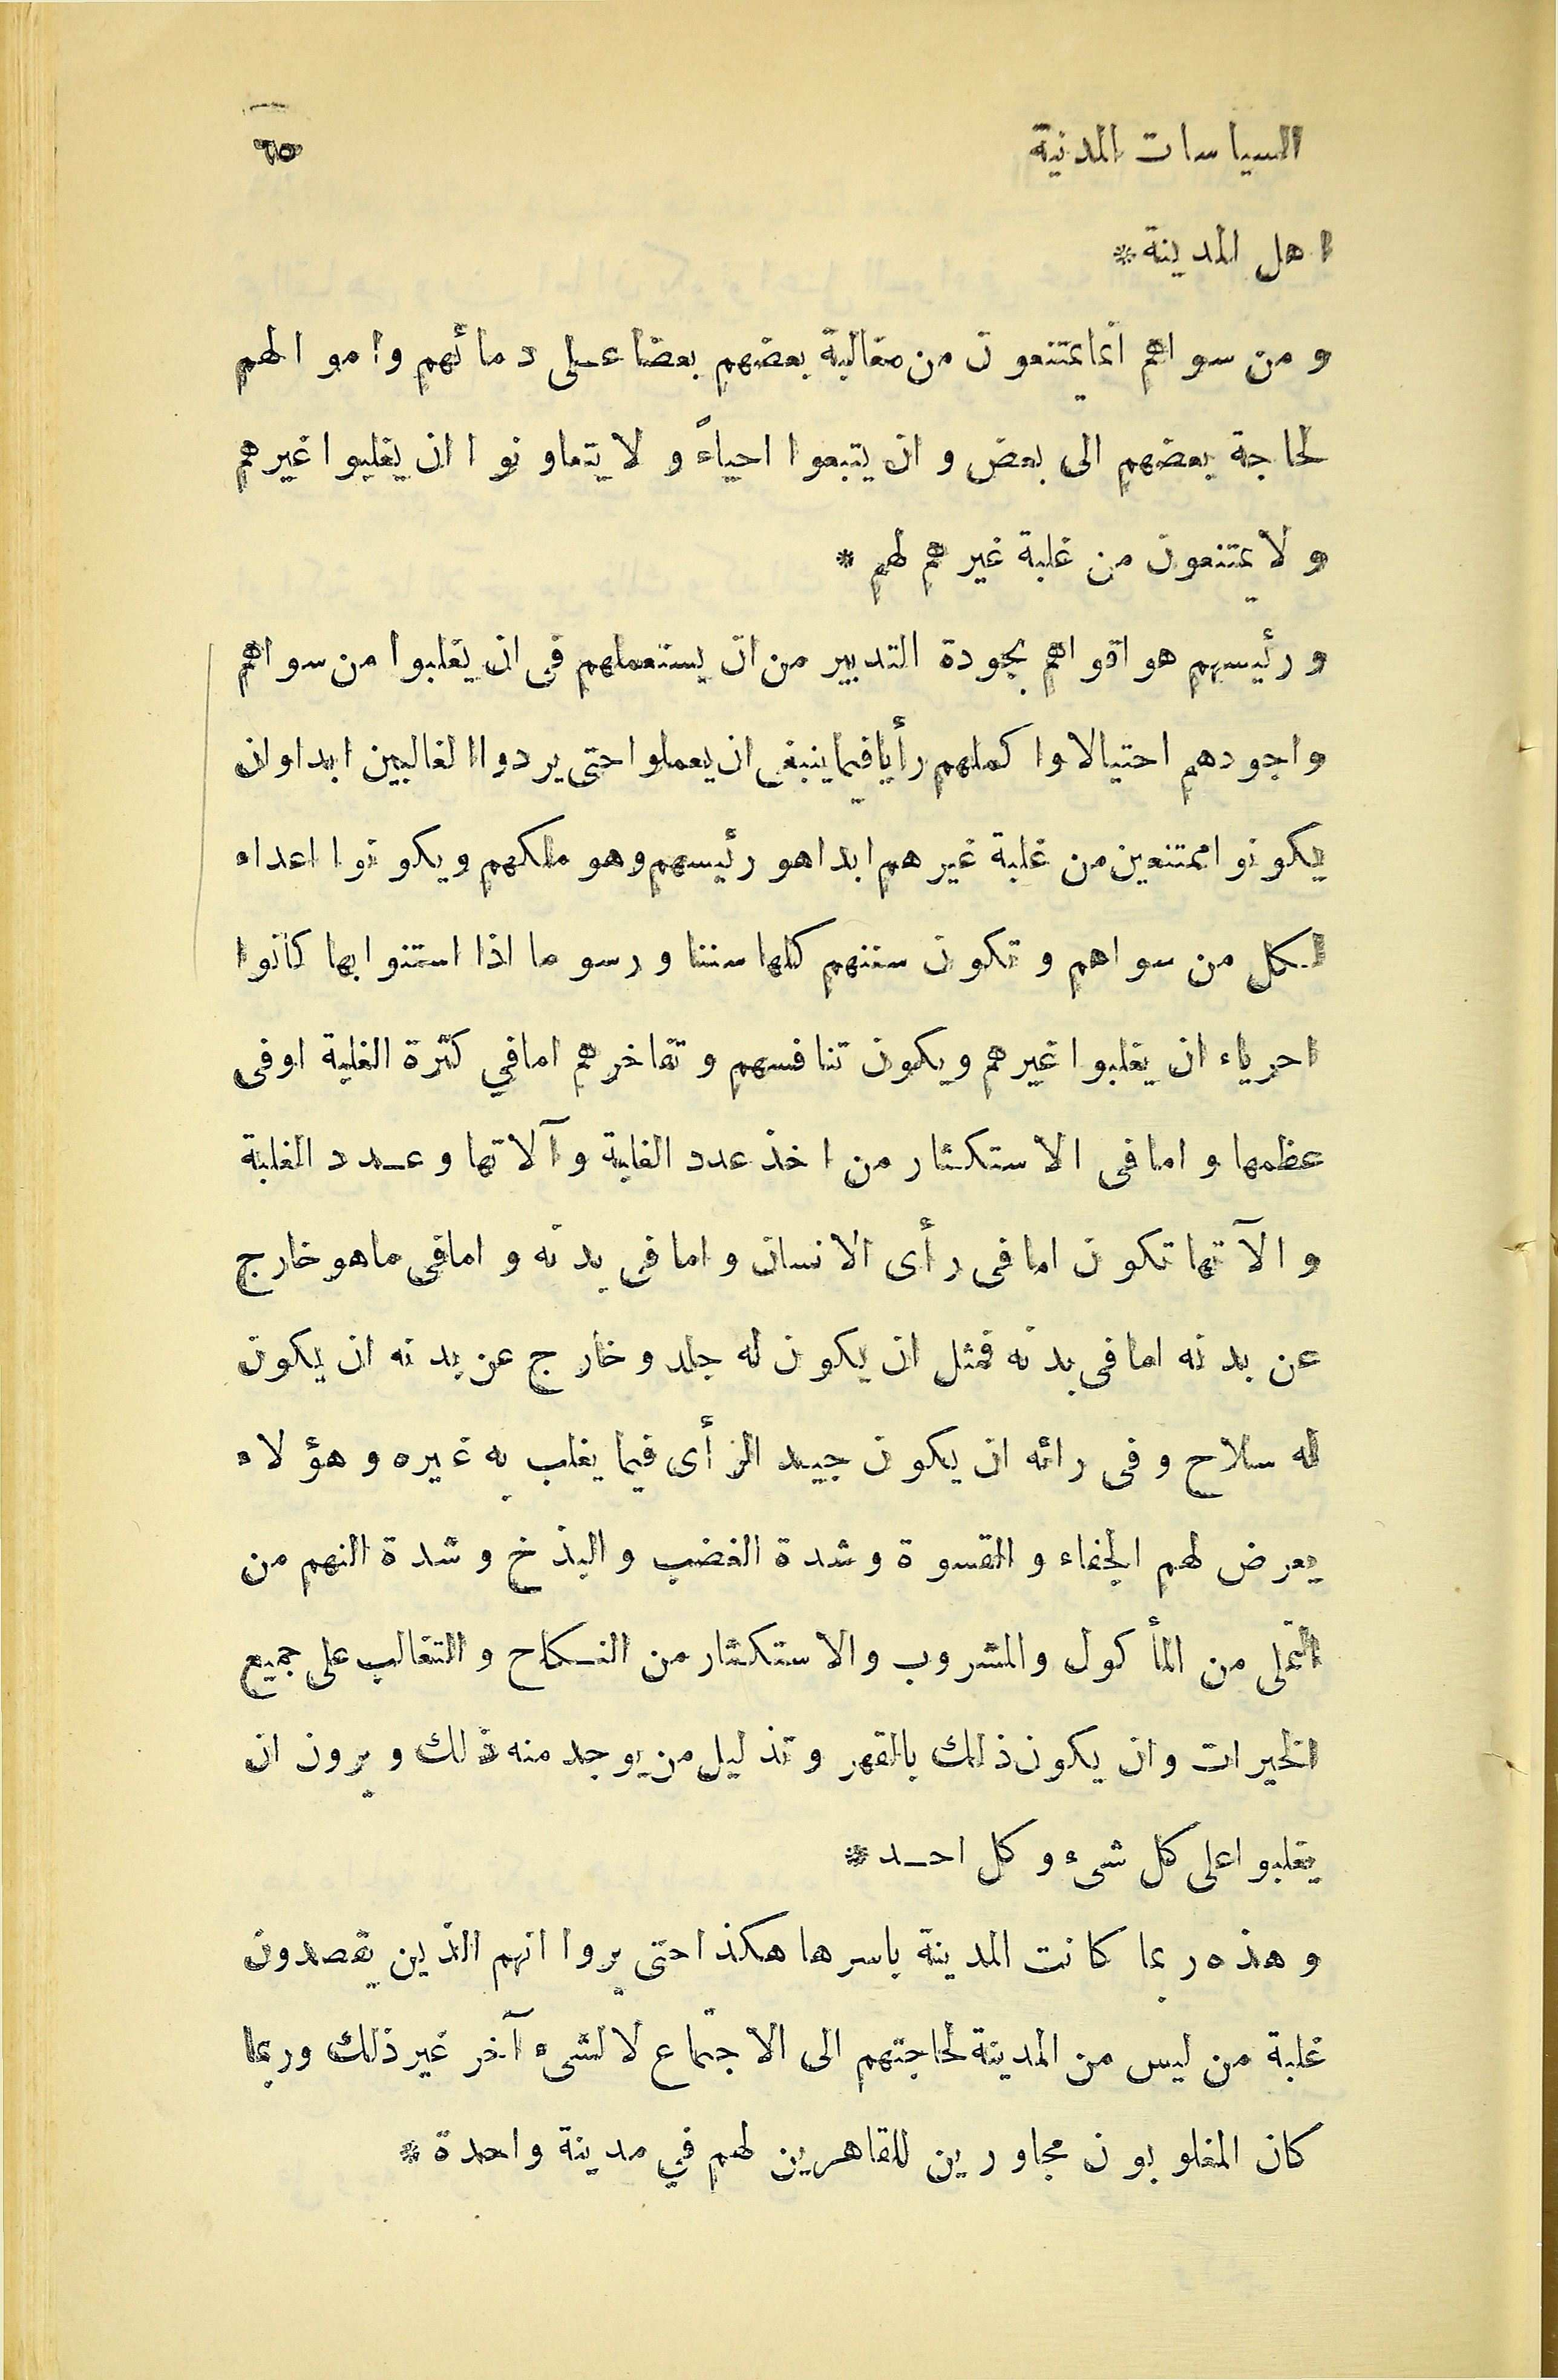 السياسات المدنية ٦٥
اهل المدينة *
و من سواهم انما يمتنعون من مغالبة بعضهم بعضا على دمائهم واموالهم
لحاجة بعضهم الى بعض و ان يتبعوا احياءً و لا يتعاونوا ان يغلبوا غيرهم
و لا يمتنعون من غلبة غيرهم لهم *
و رئيسهم هو اقواهم بجودة التدبير من ان يستعملهم فى ان يغلبوا من سواهم
واجودهم احتيالا واكملهم رأيا فيما ينبغى ان يعملوا حتى يردوا الغالبين ابدا وان
يكونوا ممتنعين من غلبة غيرهم ابدا هو رئيسهم وهو ملكهم ويكونوا اعداء
لكل من سواهم و تكون سننهم كلها سننا و رسوما اذا استنوا بها كانوا
احرياء ان يغلبوا غيرهم ويكون تنافسهم و تفاخرهم اما في كثرة الغلبة اوفى
عظمها و اما فى الاستكثار من اخذ عدد الغلبة و آلاتها و عدد الغلبة
و الآتها تكون اما فى رأى الانسان و اما فى بدنه و اما فى ماهو خارج
عن بدنه اما فى بدنه فمثل ان يكون له جلد و خارج عن بدنه ان يكون
له سلاح و فى رائه ان يكون جيد الرأى فيما يغلب به غيره و هؤلاء
يعرض لهم الجفاء و القسوة و شدة الغضب و البذخ و شدة النهم من
التملى من المأكول والمشروب والاستكثار من النكاح و التغالب على جميع
الخيرات وان يكون ذلك بالقهر و تذليل من يوجد منه ذلك و يرون ان
يغلبوا على كل شىء و كل احد *
و هذه ربما كانت المدينة باسرها هكذا حتى يروا انهم الذين يقصدون
غلبة من ليس من المدينة لحاجتهم الى الاجتماع لا لشىء آخر غير ذلك وربما
كان المغلوبون مجاورين للقاهرين لهم في مدينة واحدة *